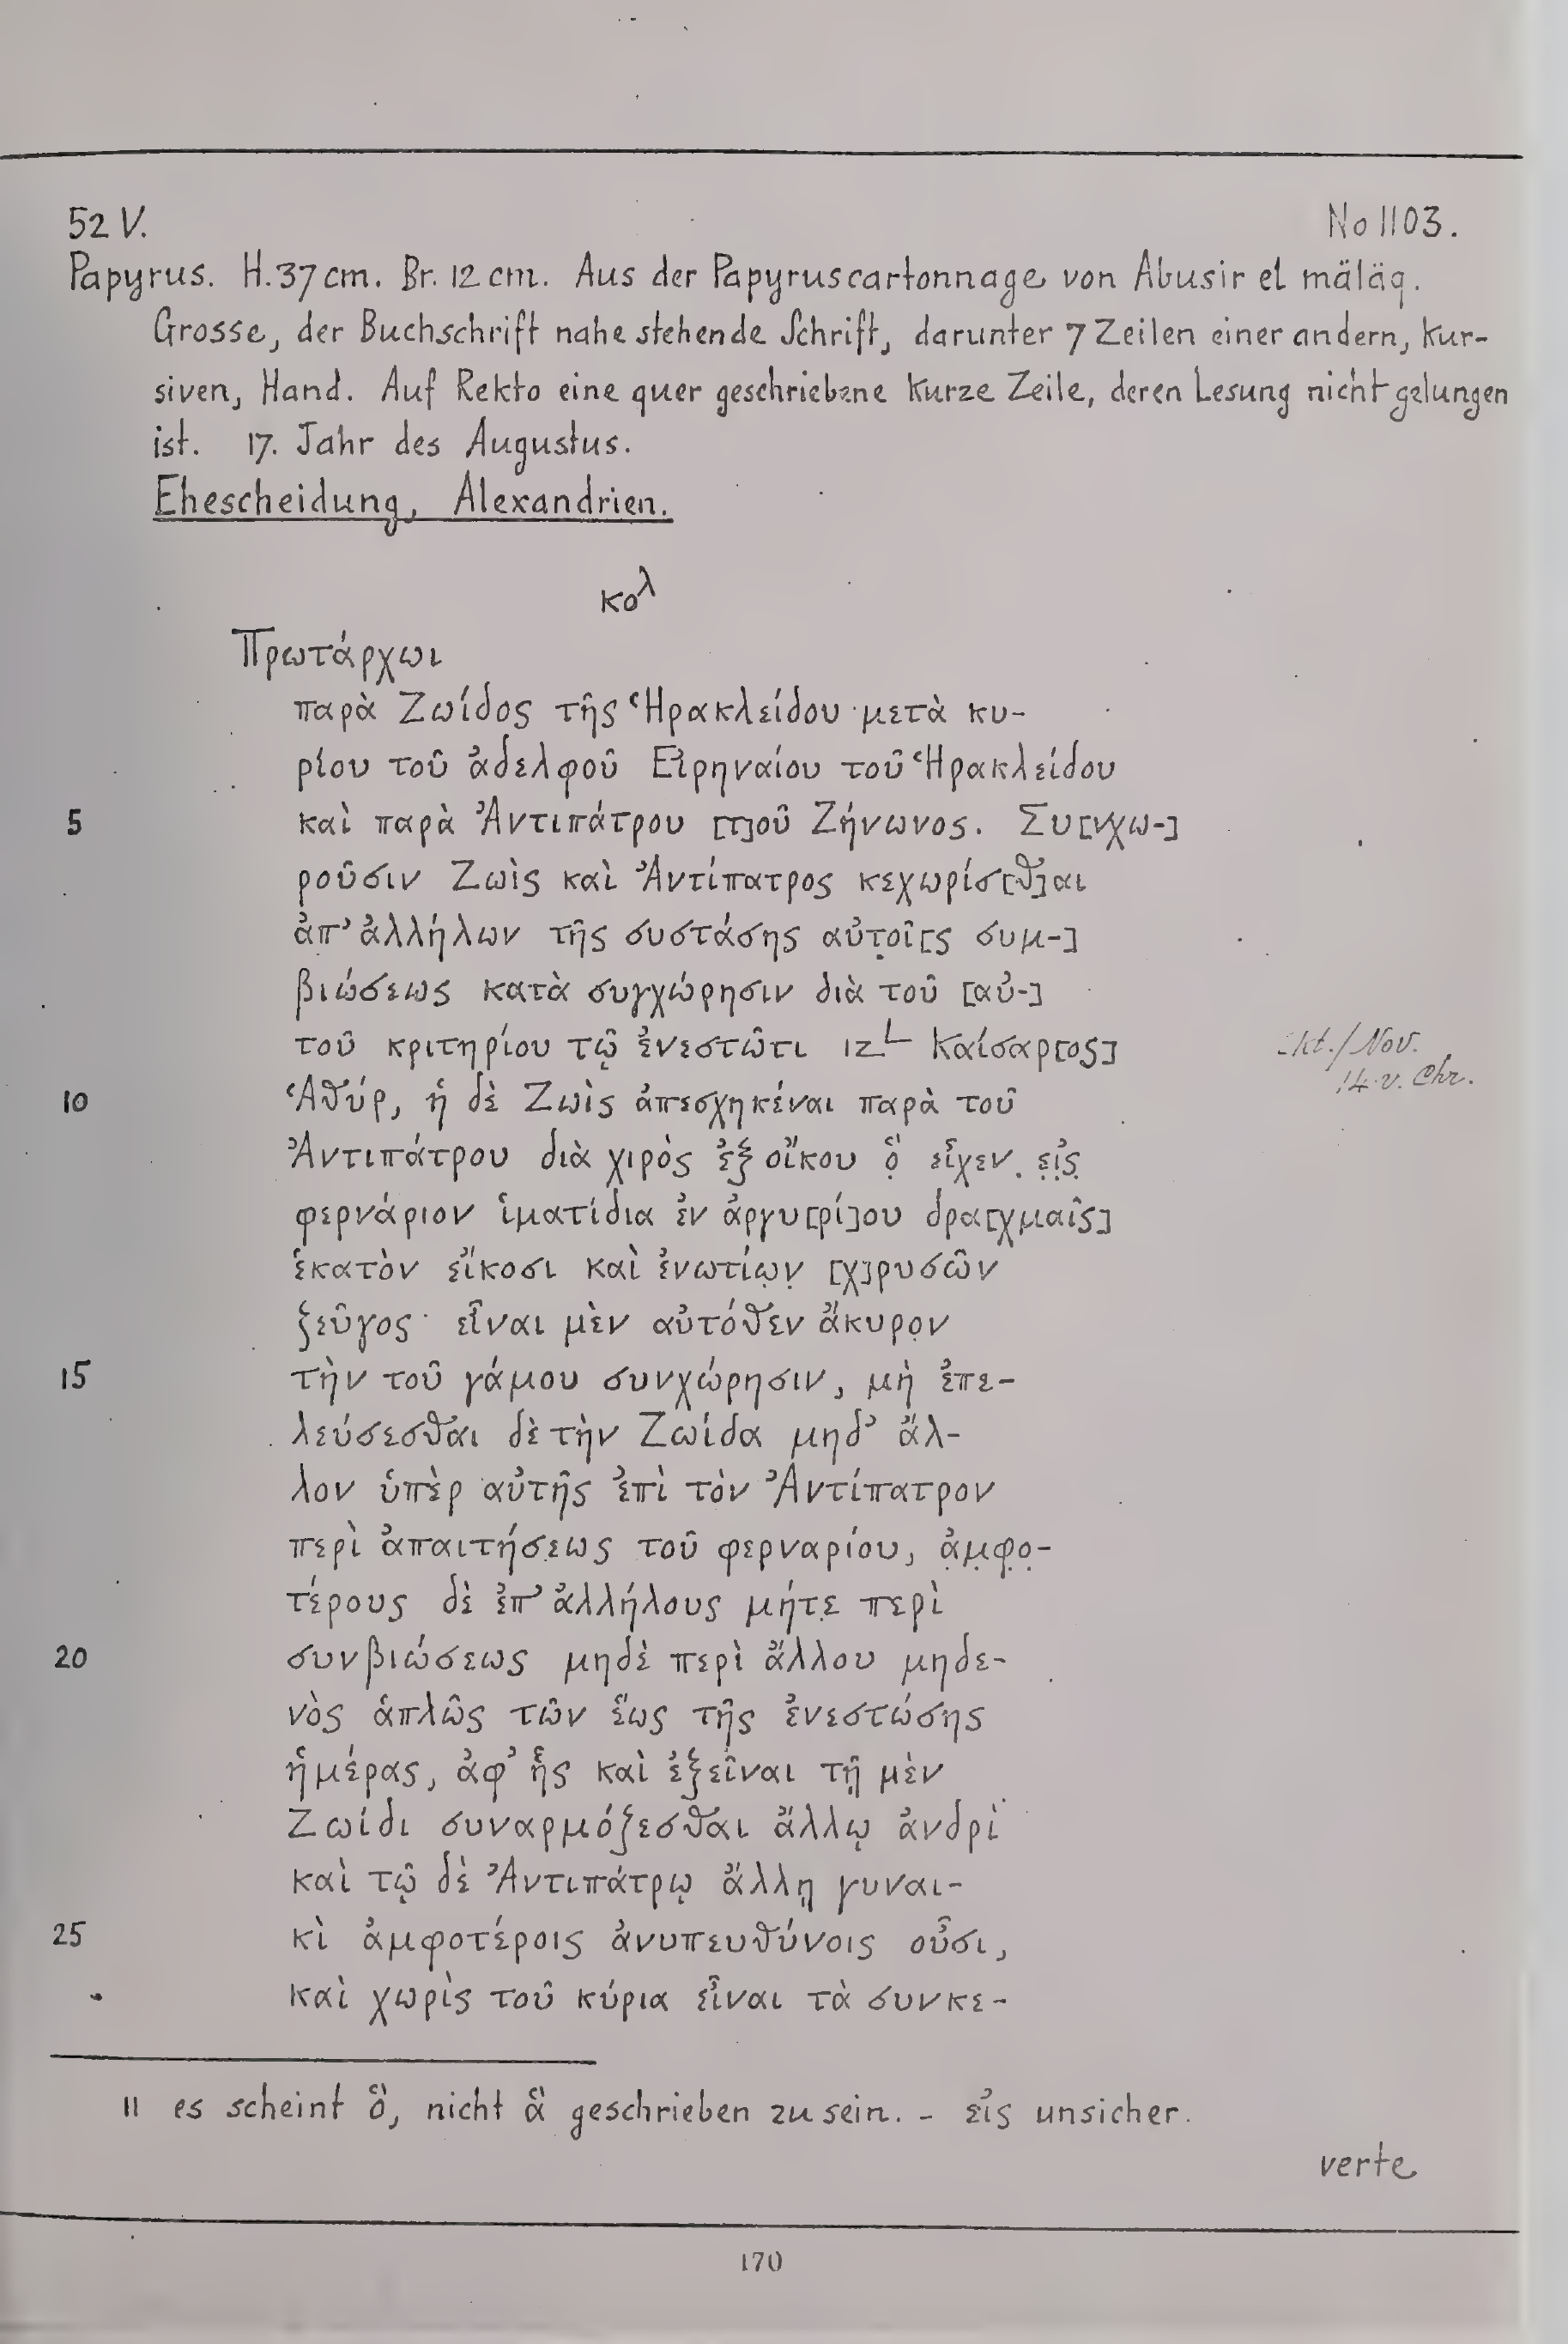 52 V. No 1103.
Papyrus. H. 37 cm. Br. 12 cm. Aus der Papyruscartonnage von Abusir el mäläq.
Grosse, der Buchschrift nahe stehende Schrift, darunter 7 Zeilen einer andern, kur-
siven, Hand. Auf Rekto eine quer geschriebene kurze Zeile, deren Lesung nicht gelungen
ist. 17. Jahr des Augustus.
Ehescheidung, Alexandrien.
κολ
Πρωτάρχωι
παρὰ Ζωίδος τῆς Ἡρακλείδου μετὰ κυ-
ρίου τοῦ ἀδελφοῦ Εἰρηναίου τοῦ Ἡρακλείδου
5 καὶ παρὰ Ἀντιπάτρου [τ]οῦ Ζήνωνος. Συ[νχω-]
ροῦσιν Ζωὶς καὶ Ἀντίπατρος κεχωρίσ[θ]αι
ἀπ’ ἀλλήλων τῆς συστάσης αὐτ̣οῖ[ς συμ-]
βιώσεως κατὰ συγχώρησιν διὰ τοῦ [αὐ-]
τοῦ κριτηρίου τῷ ἐνεστῶτι ιζ└ Καίσαρ[ος] Okt./Nov.
14 v. Chr.
10 Ἁθύρ, ἡ δὲ Ζωὶς ἀπεσχηκέναι παρὰ τοῦ
Ἀντιπάτρου διὰ χιρὸς ἐξ οἴκου ὃ̣ εἶχεν ε̣ἰ̣ς̣
φερνάριον ἱματίδια ἐν ἀργυ[ρί]ου δρα[χμαῖς]
ἑκατὸν εἴκοσι καὶ ἐνωτίω̣ν̣ [χ]ρυσῶν
ζεῦγος· εἶναι μὲν αὐτόθεν ἄκυρο̣ν
15 τὴν τοῦ γάμου συνχώρησιν, μὴ ἐπε-
λεύσεσθαι δὲ τὴν Ζωίδα μηδ’ ἄλ-
λον ὑπὲρ αὐτῆς ἐπὶ τὸν Ἀντίπατρον
περὶ ἀπαιτήσ̣εως τοῦ φερναρίου, ἀ̣μ̣φ̣ο̣-
τέρους δὲ ἐπ’ ἀλλήλους μήτ̣ε περὶ
20 συνβιώσεως μηδὲ περὶ ἄλλου μηδε-
νὸς ἁπλῶς τῶν ἕως τῆς ἐνεστώσης
ἡμέρας, ἀφ’ ἧς καὶ ἐξεῖναι τῇ μὲν
Ζωίδι συναρμόζεσθαι ἄλλῳ ἀνδρὶ
καὶ τῷ δὲ Ἀντιπάτρῳ ἄλλῃ γυναι-
25 κὶ ἀμφοτέροις ἀνυπευθύνοις οὖσι,
καὶ χωρὶς τοῦ κύρια εἶναι τὰ συνκε-
11 es scheint ὃ, nicht ἃ geschrieben zu sein. – εἰς unsicher.
verte
170